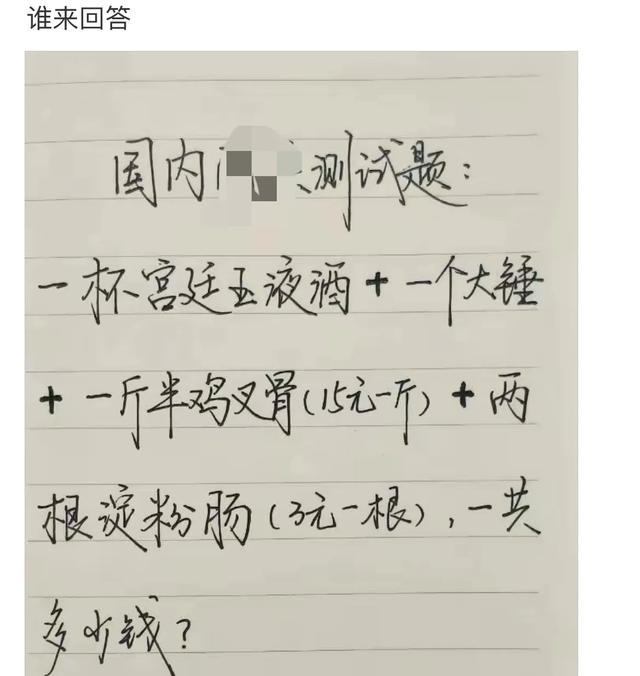 谁来回答
国内测试题:
一杯宫廷玉液酒+一个大锤
+一斤半鸡叉骨(15元一斤)+两
根淀粉肠(3元一根),一共
多少钱?